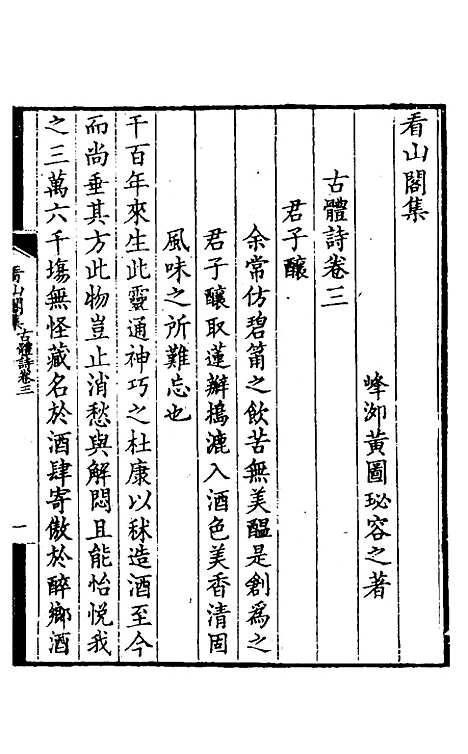 看山閣集
峰泖黃圖珌容之著
古體詩卷三
君子釀
余常仿碧筩之飲苦無美醞是創爲之
君子釀取蓮瓣搗漉入酒色美香清固
風味之所難忘也
千百年來生此靈通神巧之杜康以秫造酒至今
而尚垂其方此物豈止消愁與解悶且能怡悅我
之三萬六千塲無怪藏名於酒肆寄傲於醉鄉酒
看山閣集 古體詩卷三 一